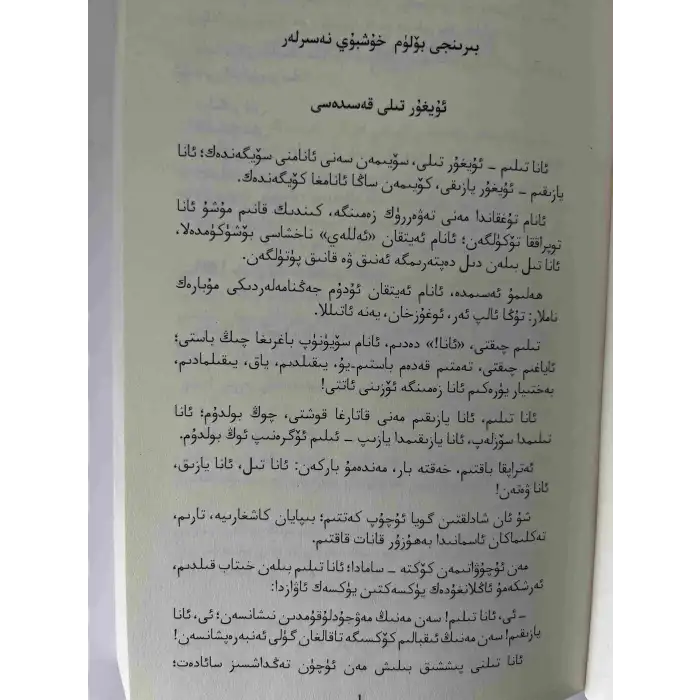 بىرىنجى بۆلۈم خۇشبۇي نەسىرلەر
ئۇيغۇر تىلى قەسىدەسى
ئانا تىلىم – ئۇيغۇر تىلى، سۆيىمەن سېنى ئانامنى سۆيگەندەك؛ ئانا
يازىقىم – ئۇيغۇر يازىقى، كۆيىمەن ساڭا ئانامغا كۆيگەندەك.
ئانام تۇغقاندا مېنى تەۋەررۈك زېمىنگە، كىندىك قانىم مۇشۇ ئانا
توپراققا تۆكۈلگەن؛ ئانام ئېيتقان «ئەللەي» ناخشاسى بۆشۈكۈمدەلا،
ئانا تىل بىلەن دىل دەپتىرىمگە ئېنىق ۋە قانىق پۈتۈلگەن.
ھېلىمۇ ئېسىمدە، ئانام ئېيتقان ئۇدۇم جەڭنامىلەردىكى مۇبارەك
ناملار: تۇڭا ئالىپ ئەر، ئوغۇزخان، يەنە ئاتىللا.
تىلىم چىقتى، «ئانا!» دېدىم، ئانام سۆيۈنۈپ باغرىغا چىڭ باستى؛
ئاياغىم چىقتى، تەمتىم قەدەم باستىم-يۇ، يىقىلدىم، ياق، يىقىلمادىم،
بەختىيار يۈرەكىم ئانا زېمىنگە ئۆزىنى ئاتتى!
ئانا تىلىم، ئانا يازىقىم مېنى قاتارغا قوشتى، چوڭ بولدۇم؛ ئانا
تىلىمدا سۆزلەپ، ئانا يازىقىمدا يازىپ – ئىلىم ئۆگرەنىپ ئوڭ بولدۇم.
ئەتراپقا باقتىم، خەقتە بار، مەندەمۇ باركەن: ئانا تىل، ئانا يازىق،
ئانا ۋەتەن!
شۇ ئان شادلقتىن گويا ئۇچۇپ كەتتىم؛ بىپايان كاشغارىيە، تارىم،
تەكلىماكان ئاسمانىدا بەھۇزۇر قانات قاقتىم.
مەن ئۇچۇۋاتىمەن كۆكتە – سامادا؛ ئانا تىلىم بىلەن خىتاب قىلدىم،
ئەرشكەمۇ ئاڭلانغۇدەك يۈكسەكتىن يۈكسەك ئاۋازدا:
– ئى، ئانا تىلىم! سەن مېنىڭ مەۋجۇدلۇقۇمدىن نىشانسەن؛ ئى، ئانا
يازىقىم! سەن مېنىڭ ئىقبالىم كۆكسىگە تاقالغان گۈلى ئەنبەرەپشانسەن!
ئانا تىلنى پىششىق بىلىش مەن ئۈچۈن تەڭداشسىز سائادەت؛